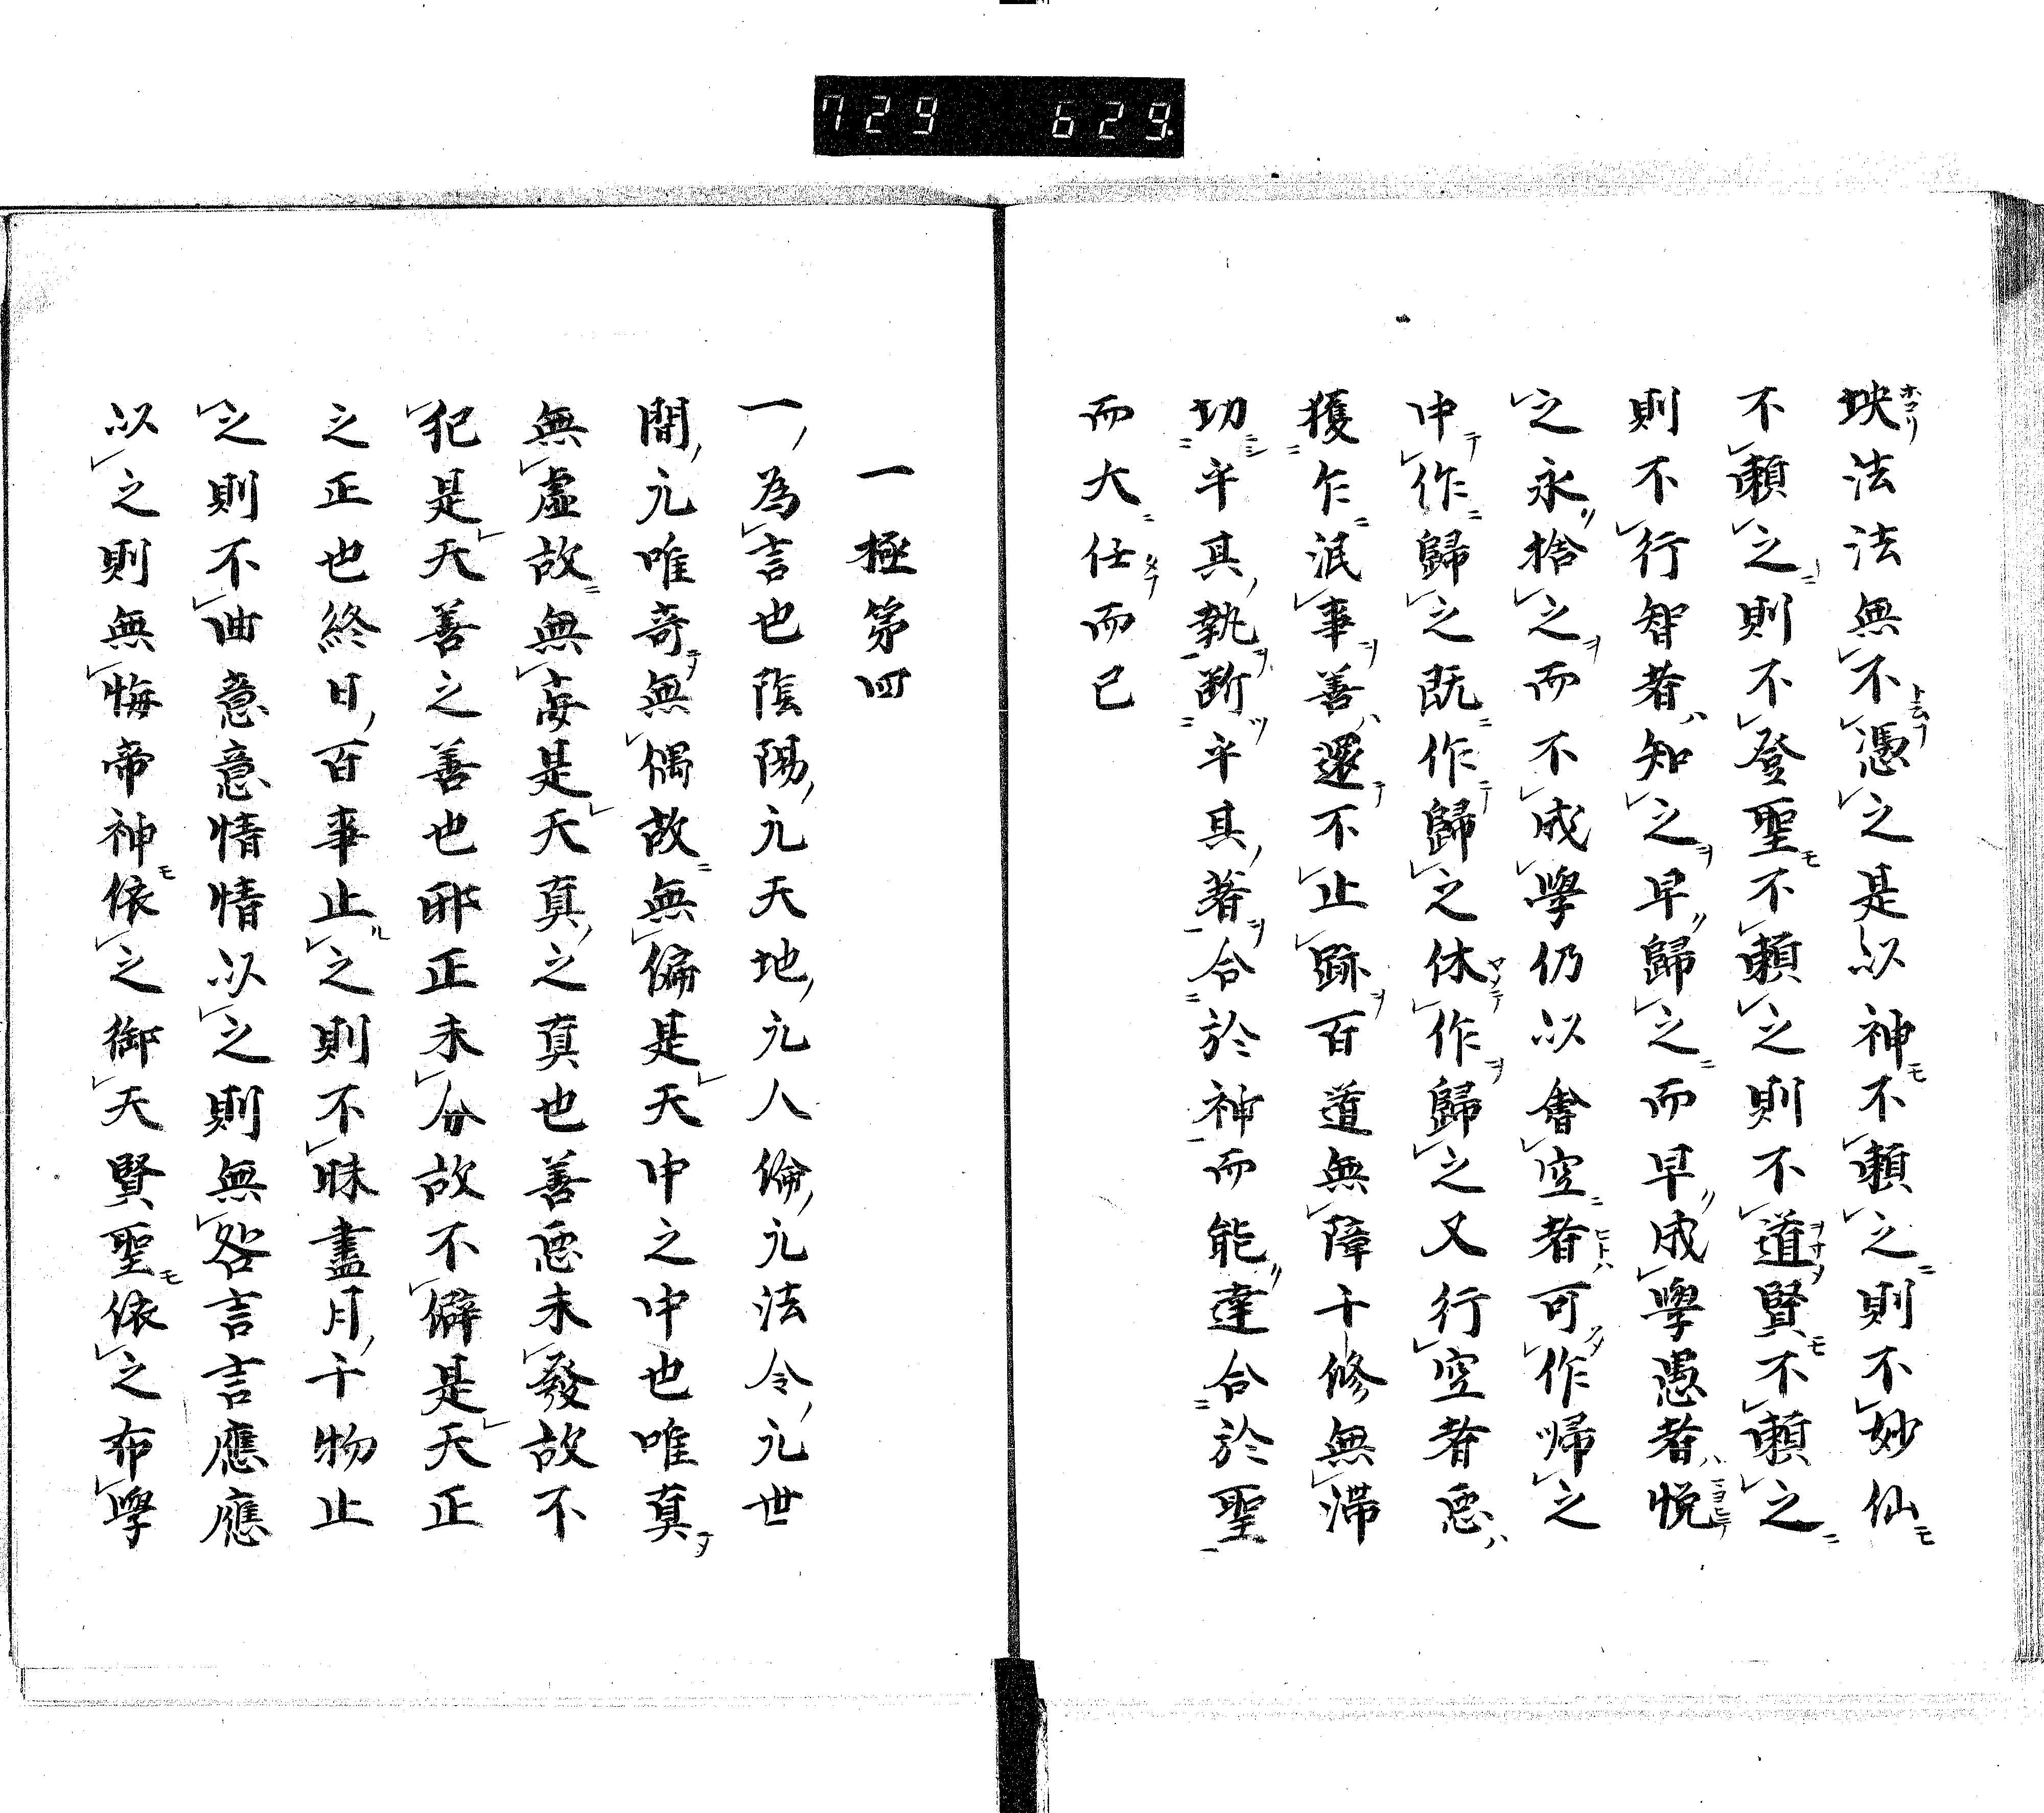 729 629
坱法法無不憑之是以神不頼之則不妙仙
不頼之則不登聖不頼之則不道賢不頼之
則不行智者知之早歸之而早成學愚者悦
之永捨之而不成學仍以會空者可作帰之
中作歸之既作歸之休作歸之又行空者惡
獲乍泯事善還不止跡百道無障千修無滞
切乎其執断乎其著合於神而能達合於聖
而大任而已
一極第四
一為言也陰陽元天地元人倫元法令元世
間元唯奇無偶故無偏是天中之中也唯真
無虚故無妄是天真之真也善惡未發故不
犯是天善之善也邪正未分故不僻是天正
之正也終日百事止之則不昧盡月千物止
之則不曲意意情情以之則無咎言言應應
以之則無悔帝神依之御天賢聖依之布學